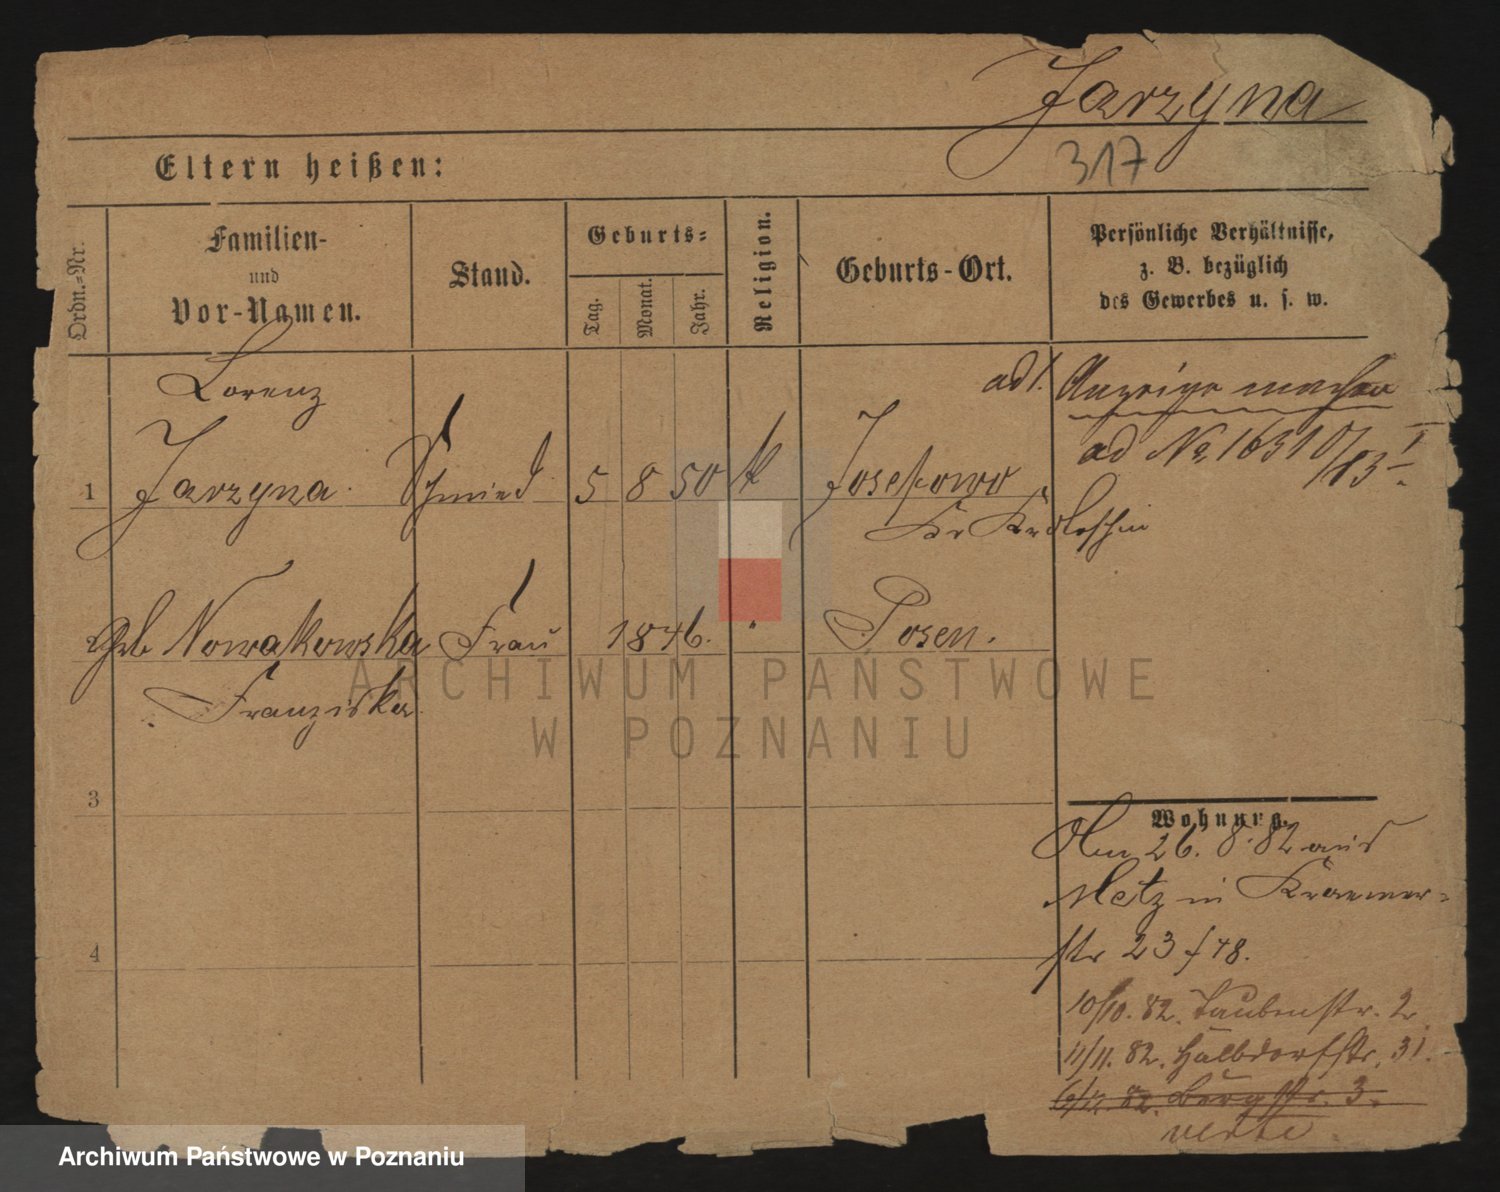 Jarzyna
Eltern heißen:
317
Ordn.-Nr.
Familien-
und
Vor-Namen.
Stand.
Geburts-
Tag.
Monat.
Jahr.
Religion.
Geburts-Ort.
Persönliche Verhältnisse,
z. B. bezüglich
des Gewerbes u. s. w.
Lorenz
1 Jarzyna Schmied 5 8 50 k Josefowo
Kr Krotoschin
ad 1. Anzeige machen
ad No 16310/83 I
2 geb Nowakowska Frau 1846. " Posen.
Franziska
3
4
Wohnung.
Am 26. 8. 82 aus
Metz in Kraemer-
str 23 f 48.
10/10. 82. Taubenstr. 2
11/11. 82. Halbdorfstr. 31.
6/12. 82. Bergstr. 3.
verte.
ARCHIWUM PAŃSTWOWE
W POZNANIU
Archiwum Państwowe w Poznaniu